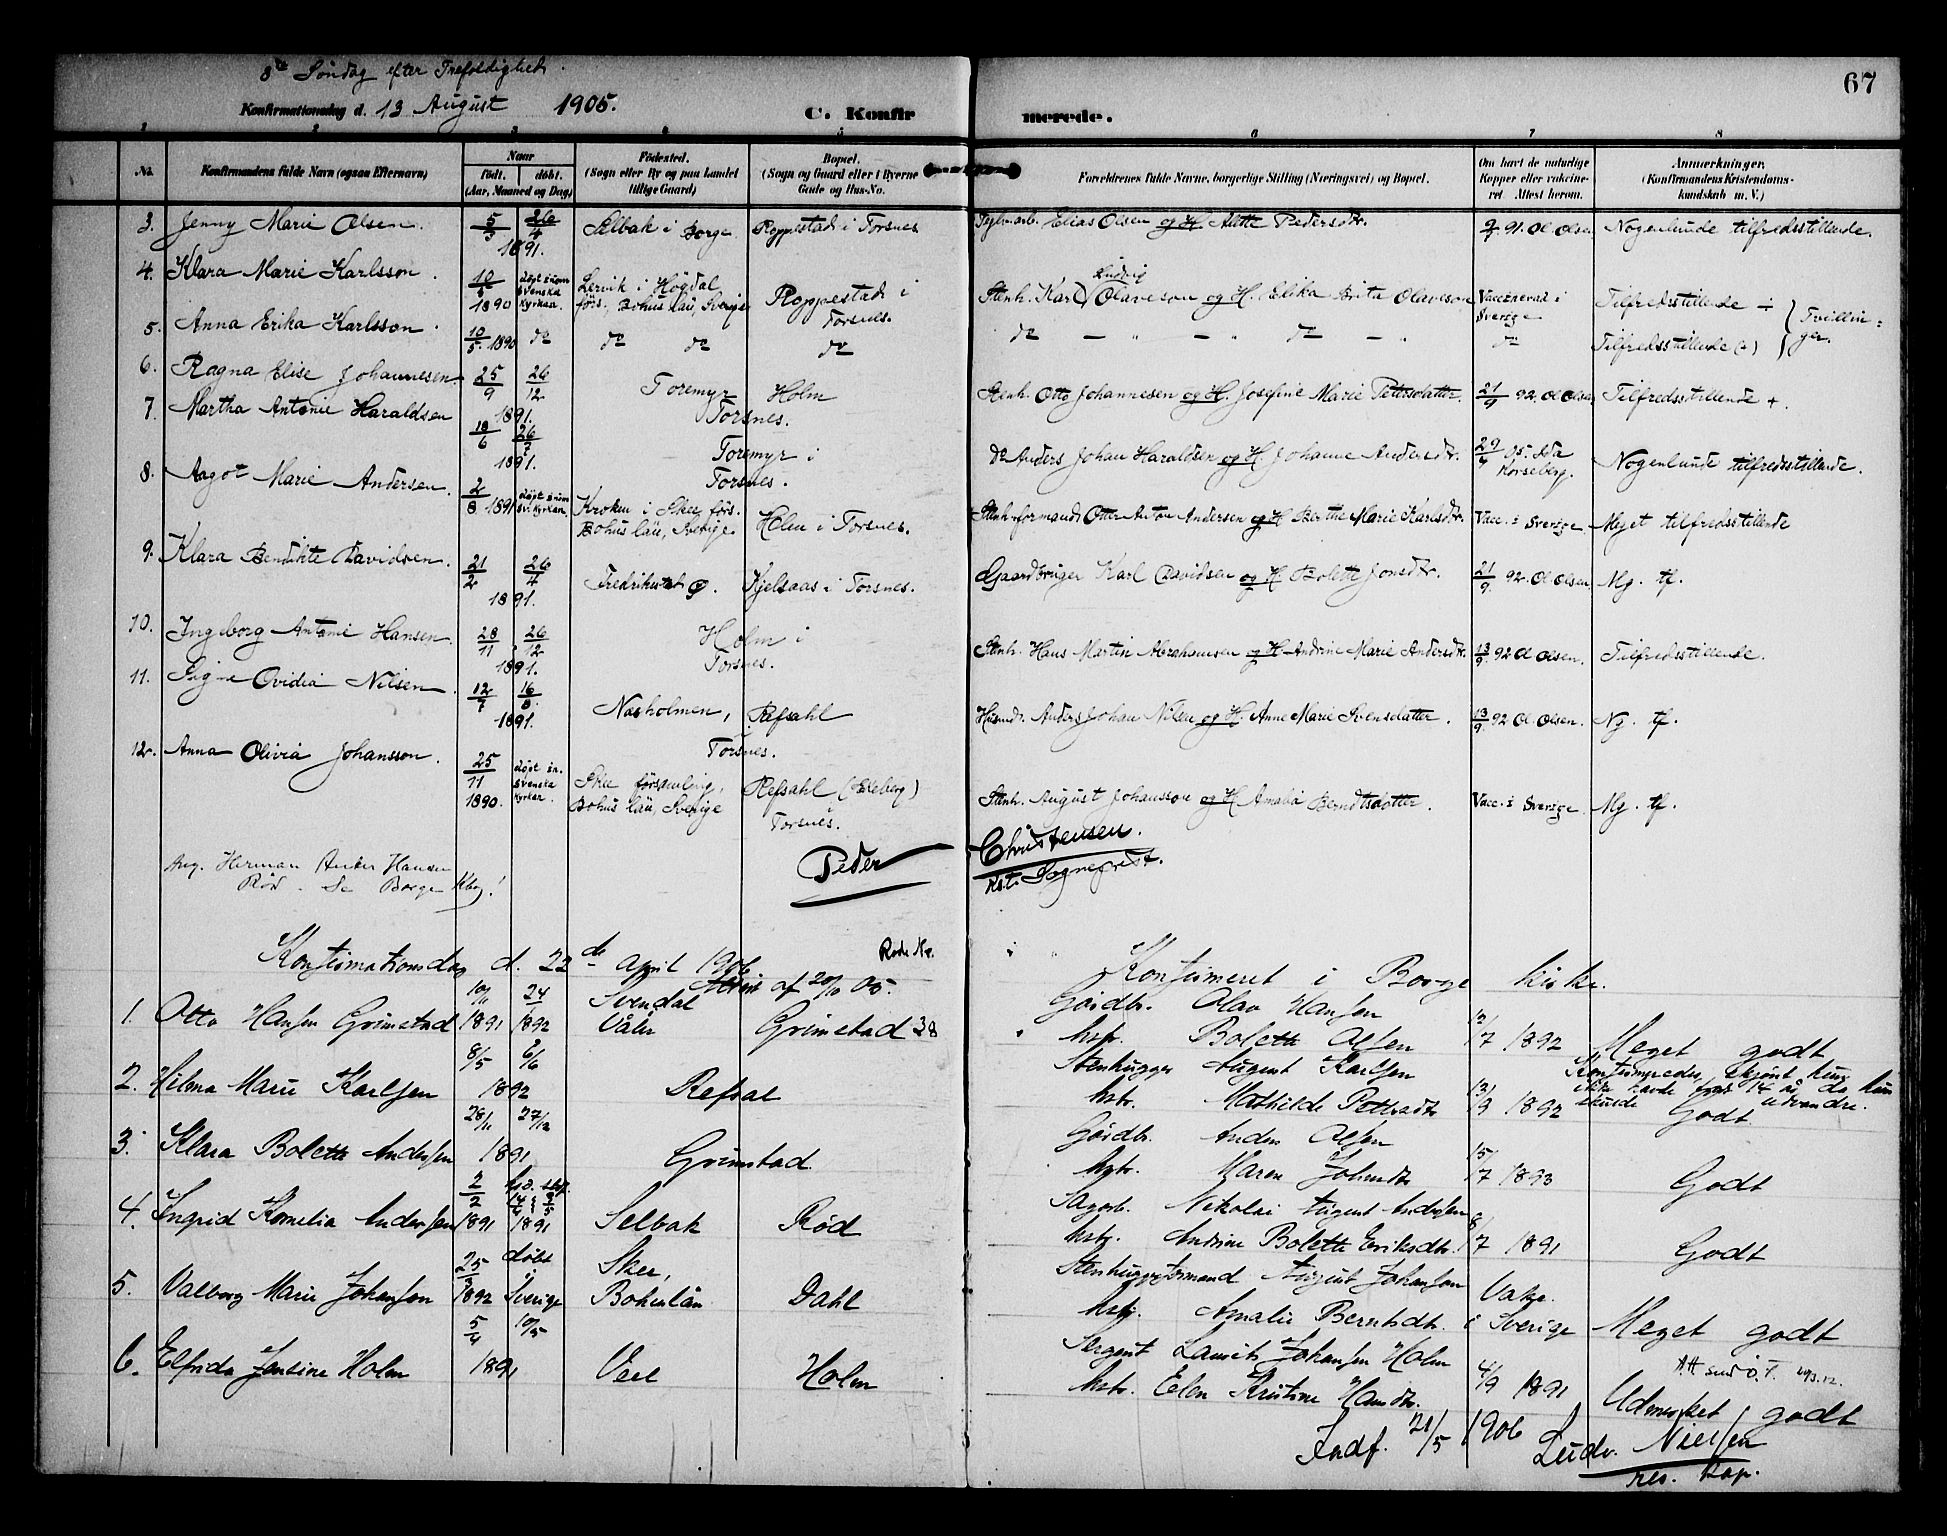 8de Søndag efter Trefoldighet.
Konfirmationsdag d. 13 August 1905.
C. Konfirmerede.
67
1 2 3 4 5 6 7 8
No.
Konfirmandens fulde Navn (ogsaa Efternavn)
Naar
født. døbt.
(Aar, Maaned og Dag)
Fødested.
(Sogn eller By og paa Landet
tillige Gaard)
Bopæl.
(Sogn og Gaard eller i Byerne
Gade og Hus-No.
Forældrenes fulde Navne, borgerlige Stilling (Næringsvei) og Bopæl.
Om havt de naturlige
Kopper eller vaccine-
ret. Attest herom.
Anmærkninger.
(Konfirmandens Kristendoms-
kundskab m. V.)
3. Jenny Marie Olsen. 5/3 26/4 1891. Selbak i Borge Roppestad i Torsnes Elias Olsen og H. Alette Pedersdtr. 91. Ol Olsen Nogenlunde tilfredsstillende.
4. Klara Marie Karlsson. 10/5 1890 døpt inom svenska kyrkan. Lervik i Högdal förs., Bohus län, Sverige Roppestad i Torsnes. Stenh. Karl Ludvig Olaveson og H. Elika Brita Olaveson Vaccinerad i Sverige Tilfredsstillende ÷
5. Anna Erika Karlsson. 10/5 1890 do do do do do — " — " do — " do Tilfredsstillende (÷) Tvillinger.
6. Ragna Elise Johannesen 25/9 26/12 1891. Toremyr Torsnes. Holm Stenh. Otto Johannesen og H. Josefine Marie Petersdatter. 21/9 92. Ol Olsen Tilfredsstillende +.
7. Martha Antonie Haraldsen 18/6 26/7 1891. Toremyr i Torsnes. do Anders Johan Haraldsen og H Johanne Andersdtr. 05. Ida Korseberg. Nogenlunde tilfredsstillende.
8. Aagot Marie Andersen. 2/8 1891 døpt inom sv. kyrkan Kroken i Skee förs. Bohus län, Sverige. Holm i Torsnes. Stenh.formand Otto Anton Andersen og H Berthe Marie Karlsdtr. Vacc. i Sverige Meget tilfredsstillende
9. Klara Bendikte Davidsen. 21/2 26/4 1891. Fredrikstad Kjelsaas i Torsnes. Gaardbruger Karl Davidsen og H. Bolette Jonsdtr. 21/9 92. Ol Olsen. Mg. tf.
10. Ingeborg Antonie Hansen. 28/11 26/12 1891. Holm i Torsnes. Stenh. Hans Martin Abrahamsen og H. Andrine Marie Andersdtr. 13/9 92 Ol Olsen. Tilfredsstillende.
11. Signe Ovidia Nilsen. 12/7 16/8 1891. Næsholmen, Refsahl i Torsnes. Husmd. Anders Johan Nilsen og H. Anne Marie Svensdatter. 13/9 92 Ol. Olsen. Ng. tf.
12. Anna Olivia Johansson. 25/11 1890. døpt in. svenska kyrkan. Skee församling, Bohus län, Sverige Refsahl (Ekeberg) i Torsnes. Stenh. August Johansson og H Amalia Berndtsdotter. Vacc. i Sverige. Mg. tf.
Ang. Herman Anker Hansen
Rød. Se Borge Kbog!
Peder Christensen.
kst. Sogneprest.
Konfirmationsdag d. 22de April 1906 Konfirmeret i Borge kirke.
1. Otto Hansen Grimstad 10/11 1891 24/ 1892 Svendal Våler Attest af 20/10 05. Grimstad 38 Gårdbr. Olav Hansen hstr. Bolette Olsen 12/7 1892 Meget godt
2. Hilma Marie Karlsen 8/5 6/6 1892 Refsal Stenhugger August Karlsen hstr. Mathilde Pettersdtr 13/9 1892 Konfirmeredes, skjønt hun ikke havde fyldt 14 år, da hun skulde udvandre. Godt.
3. Klara Bolette Andersen 28/11 27/12 1891 Grimstad Gårdbr. Anders Olsen hstr. Maren Johnsdtr 15/7 1893 Godt
4. Ingrid Kornelia Andersen 2/2 1891 1891 Selbak Rød Sagarb. Nikolai August Andersen hstr. Andrine Bolette Eriksdtr. 8/7 1891 Godt
5. Valborg Marie Johansson 25/3 1892 døbt i Sverige Skee, Bohuslän Dahl Stenhuggerformand August Johanson hstr. Amalie Berntsdtr. Vakc. i Sverige Meget godt
6. Elfrida Jensine Holm 5/4 10/5 1891 Veel Holm Sergent Laurits Johansen Holm hstr. Elen Kristine Hansdtr. 4/9 1891 Udmerket godt
Indf. 21/5 1906 Ludv. Nielsen
res. kap.